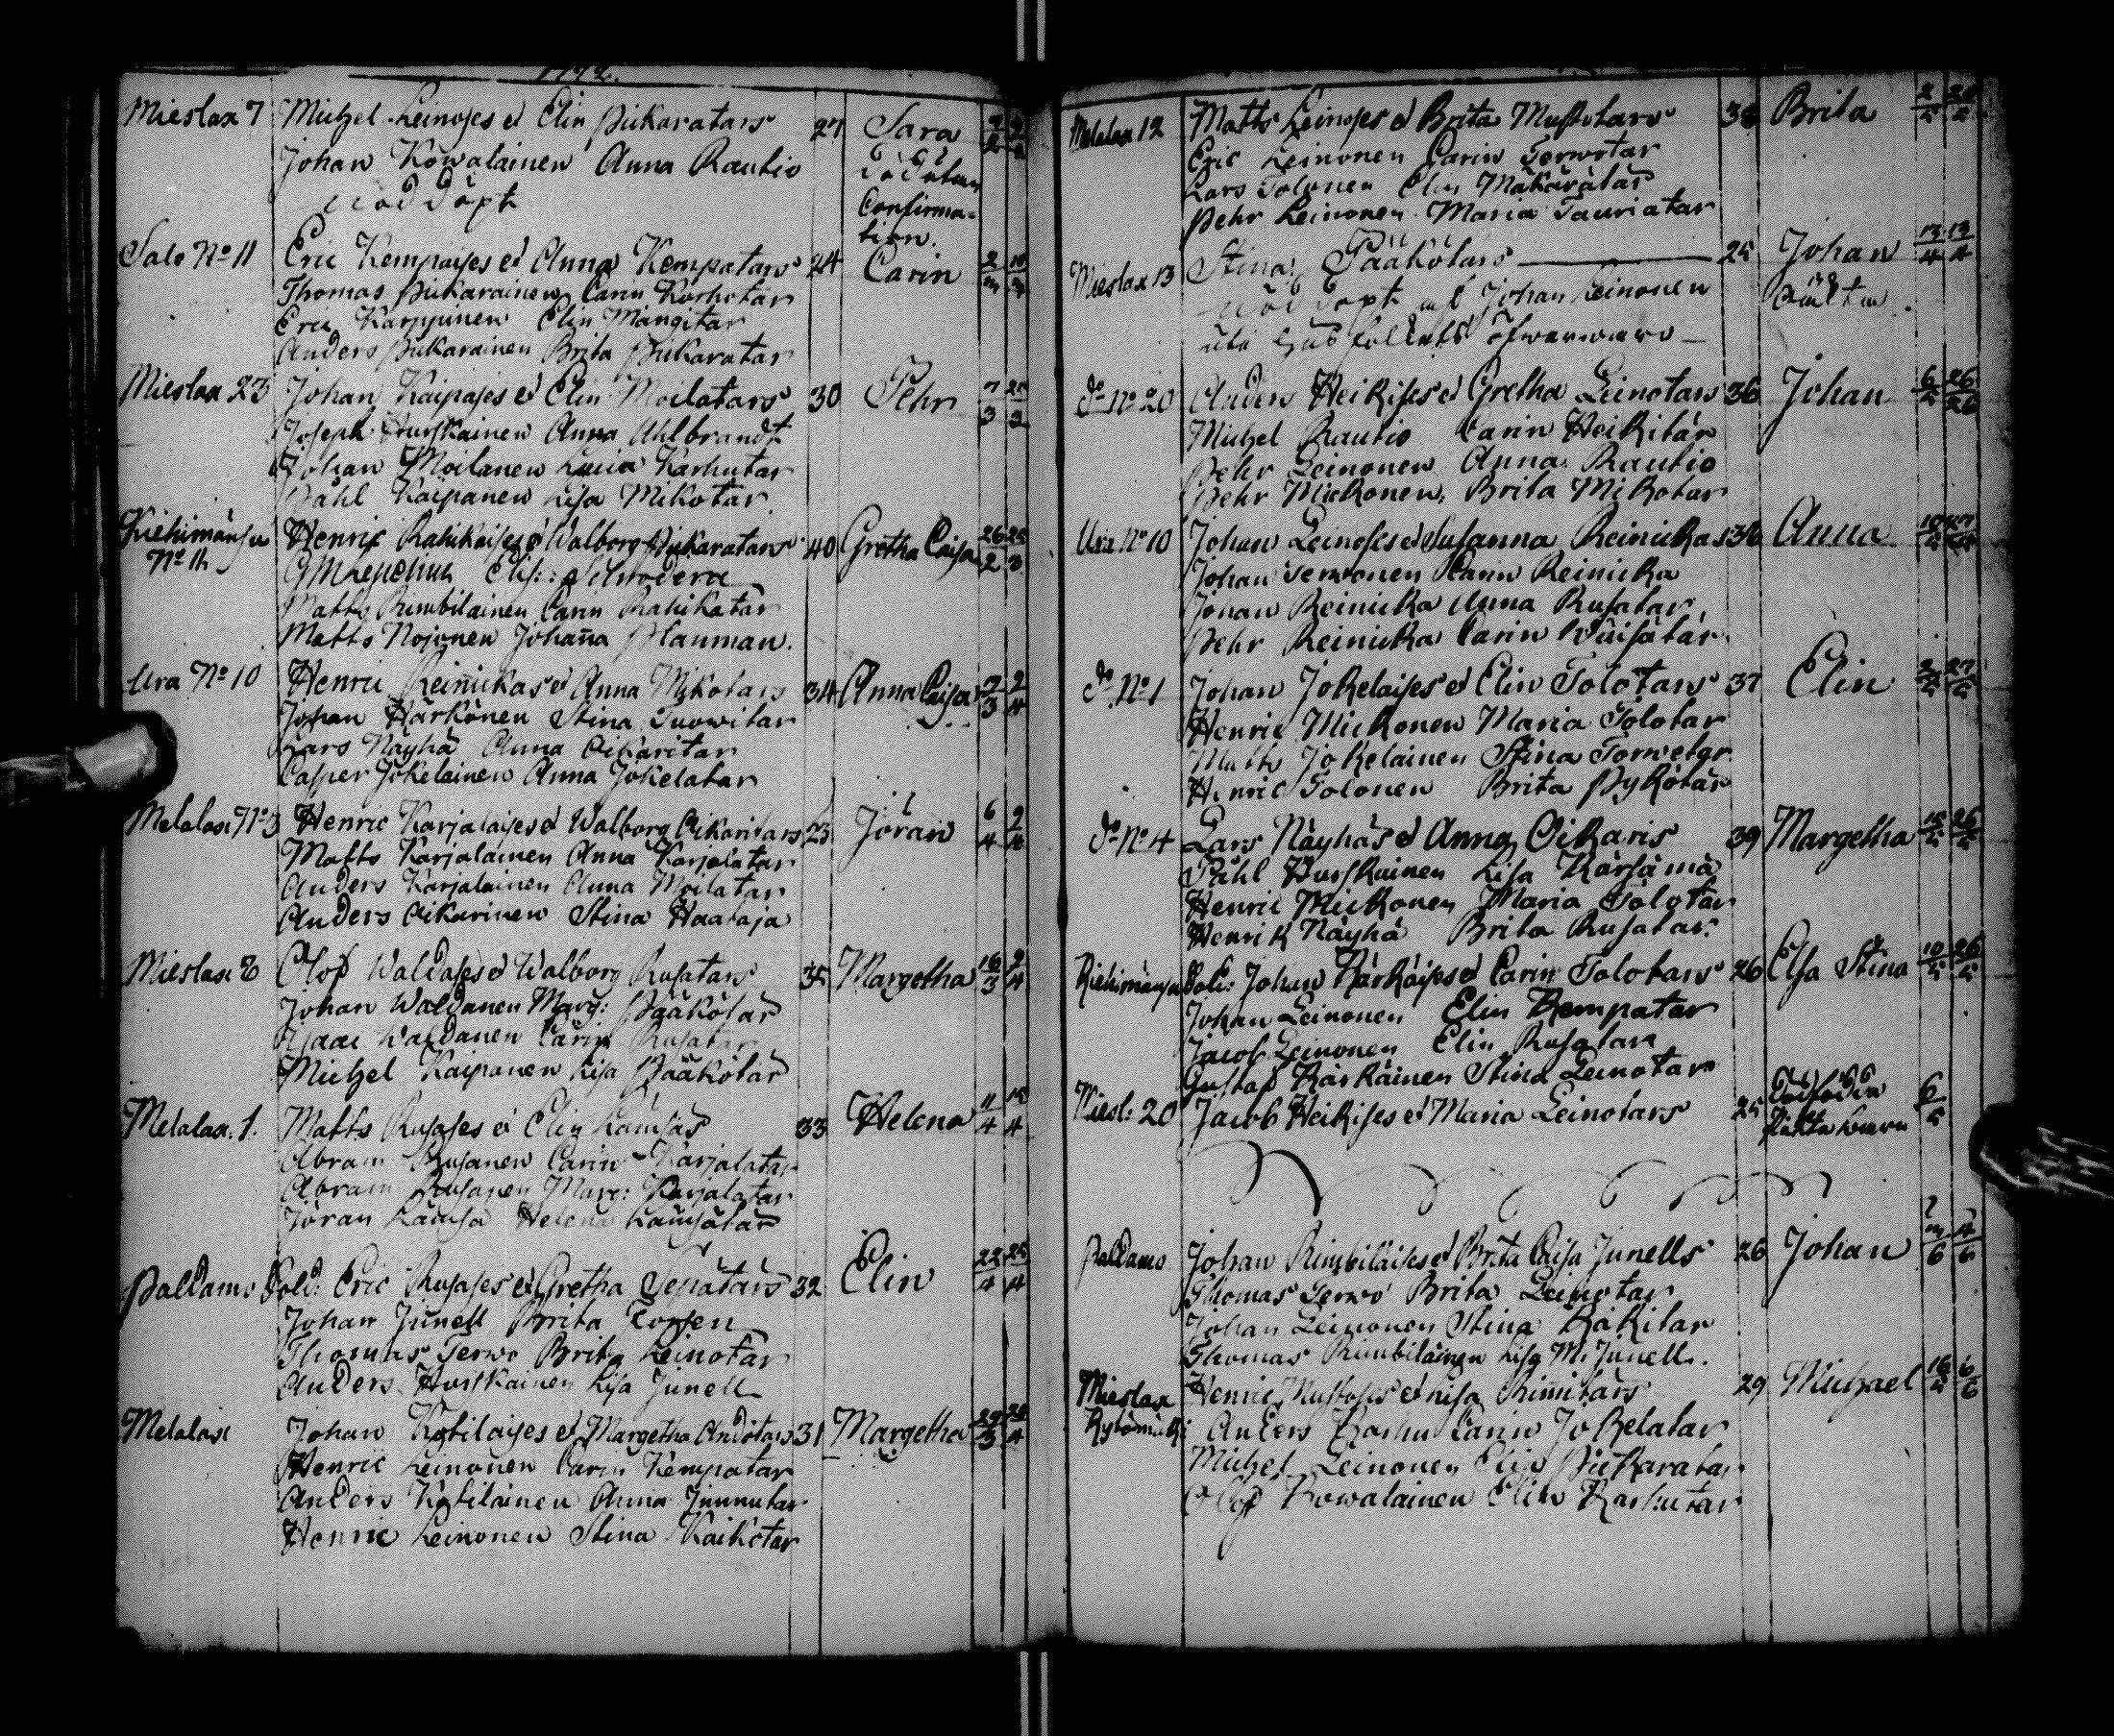 1792.
Mieslax 7 Michel Leinoises et Elin Pikaratars 27 Sara
Johan Kowalainen Anna Rautio död utan
Nöddöpt Confirma=
tion.
Salo No 11 Eric Kempaises et Anna Kempatars 24 Carin
Thomas Pikarainen Carin Korhotar
Eric Karppinen Elin Mangitar
Anders Pikarainen Brita Pikaratar
Mieslax 23 Johan Kaipaises et Elin Moilatars 30 Pehr 7/3 25/3
Joseph Huskainen Anna Ahlbrandt
Johan Moilanen Lucia Karhutar
Påhl Kaipanen Lisa Mikotar.
Kiehimänsu Henric Rahikaises et Walborg Pikaratars 40 Gretha Caisa 26/2 25/3
No 11 Elis:
Matts Rimbilainen Carin Rahikatar
Matts Nojonen Johanna Planman.
Ura No 10 Henric Reinickas et Anna Mikotars 34 Anna Caisa
Johan Härkönen Stina Tuowitar
Lars Näyhä Anna Oikaritar
Casper Jokelainen Anna Jokelatar
Melalax No 3 Henric Karjalaises et Walborg Oikaritars 23 Jöran 6/4 9/4
Matts Karjalainen Anna Karjalatar
Anders Karjalainen Anna Moilatar
Anders Oikarinen Stina Haataja
Mieslax 8 Olof Waldases et Walborg Rusatars 35 Margetha 16/3 2/4
Johan Waldanen Marg: Pääkötar
Isaac Waldanen Carin Rusatar
Michel Kaipanen Lisa Pääkötar
Melalax: 1. Matts Rusases et Elin Lämsäs 33 Helena 11/4 15/4
Abram Rusanen Carin Karjalatar
Abram Rusanen Marg: Karjalatar
Jöran Lämsä Helena Lämsätar
Paldamo Sold: Eric Rusases et Gretha Sepätars 32 Elin 22/4 25/4
Johan Junell Brita
Thomas Terwo Brita Leinotar
Anders Huskainen Lisa Junell
Melalax Johan Kotilaises et Margetha Andotars 31 Margetha
Henric Leinonen Carin Kempatar
Anders Kotilainen Anna Junnutar
Henric Leinonen Stina Kaikotar
Melalax 12 Matts Leinoses et Brita Mustotars 38 Brita
Eric Leinonen Carin Terwotar
Lars Tolonen Elin Mäkärätär
Pehr Leinonen Maria Tauriatar
Mieslax 13 Stina Pääkötars 25 Johan 13/4 13/4
Nöddöpt af Johan Leinonen oäkta
öfwerwaro
do No 20 Anders Heikises et Gretha Leinotars 36 Johan
Michel Rautio Carin Heikitär
Pehr Leinonen Anna Rautio
Pehr Mickonen, Brita Mikotar
Ura No 10 Johan Leinoses et Susanna Reinickas 36 Anna
Johan Terwonen Carin Reinicka
Johan Reinicka Anna Rusatar,
Pehr Reinicka Carin Wäisätär.
do No 1 Johan Jokelaises et Elin Tolotars 37 Elin
Henric Mickonen Maria Tolotar
Matts Jokelainen Stina Torwetar.
Henric Tolonen Brita Pykötär
do No 4 Lars Näyhäs et Anna Oikaris 39 Margetha
Påhl Huskainen Lisa Kärsämä
Henric Mickonen Maria Tolotar
Henrik Näyhä Brita Rusatar.
Kiehimänsu Sold: Johan Kärkäises et Carin Tolotars 26 Elsa Stina
Johan Leinonen Elin Kempatar
Jacob Leinonen Elin Rusatar
Gustaf Kärkäinen Stina Leinotar
Miesl: 20 Jacob Heikises et Maria Leinotars 25 Dödfödda
äkta barn
Paldamo Johan Rimbiläises et Brita Caisa Junells 26 Johan
Thomas Terwo Brita Leinotar
Johan Leinonen Stina Käkitar
Thomas Rimbiläinen Lisa M: Junell.
Mieslax Henric Mustoses et Lisa Rimitars 29 Michael
Kylömäki Anders Karhu Carin Jokelatar
Michel Leinonen Elin Pikaratar
Olof Kowalainen Elin Karhutar